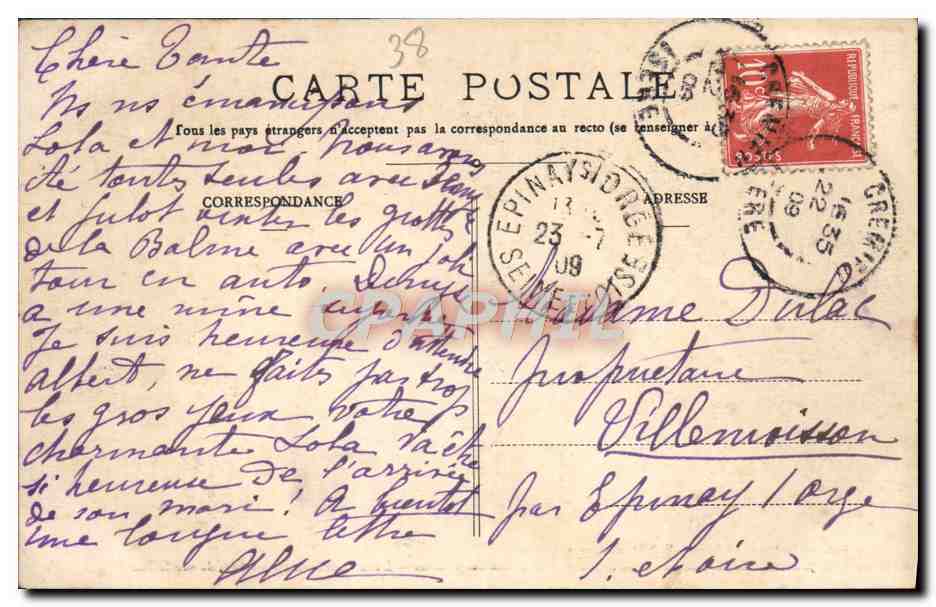 38
CARTE POSTALE
Tous les pays étrangers n'acceptent pas la correspondance au recto (se renseigner à
CORRESPONDANCE
ADRESSE
Chère Tante
Ns ns émancipons
Lola et moi. Nous avons
été toutes seules avec
et Julot visiter les grottes
de la Balme avec un joli
tour en auto.
a une mine superbe
Je suis heureuse d'attendre
Albert, ne faites pas trop
les gros yeux votre
charmante Lola
si heureuse de l'arrivée
de son mari! A bientôt
une longue lettre
Madame Dulac
propriétaire
Villemoisson
par Epinay s/orge
S. et Oise
EPINAY S/ ORGE
23 -7
09
SEINE-ET-OISE
CREMIEU
16 35
22
09
ISERE
REPUBLIQUE FRANÇAISE
10c
POSTES
CPARTPHIL